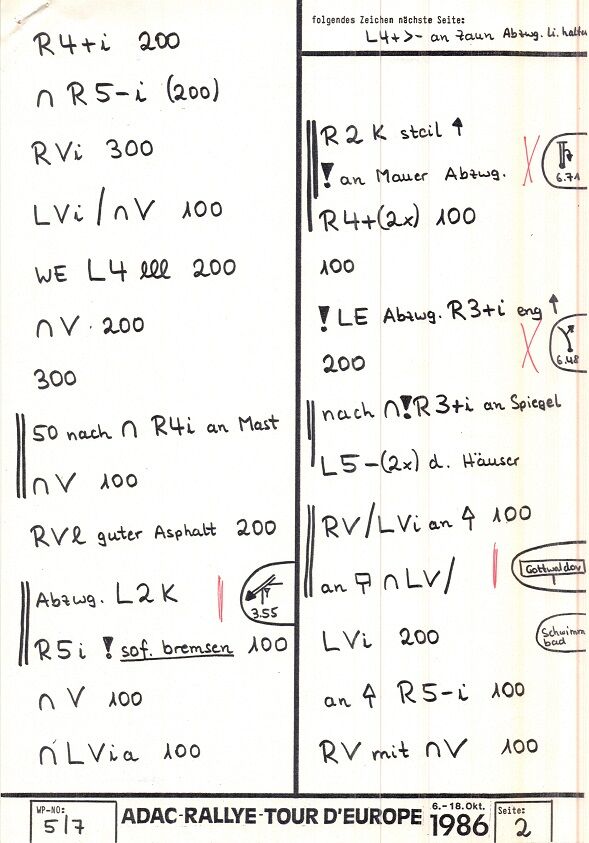 R4+i 200
∩ R5-i (200)
RVi 300
LVi/∩V 100
WE L4 lll 200
∩V 200
300
50 nach ∩ R4i an Mast
∩V 100
RVl guter Asphalt 200
Abzwg. L2K
3.55
R5i ! sof. bremsen 100
∩V 100
∩ LVia 100
folgendes Zeichen nächste Seite:
L4+>- an Zaun Abzwg. li. halten
R2K steil ↑
! an Mauer Abzwg.
6.71
R4+(2x) 100
100
! LE Abzwg. R3+i eng ↑
6.48
200
nach ∩ ! R3+i an Spiegel
L5-(2x) d. Häuser
RV/LVi an ↑ 100
an ∩LV/
Gottwaldov
LVi 200
Schwimm
bad
an ↑ R5-i 100
RV mit ∩V 100
WP-NO:
5/7
ADAC-RALLYE-TOUR D'EUROPE
6.-18. Okt.
1986
Seite:
2